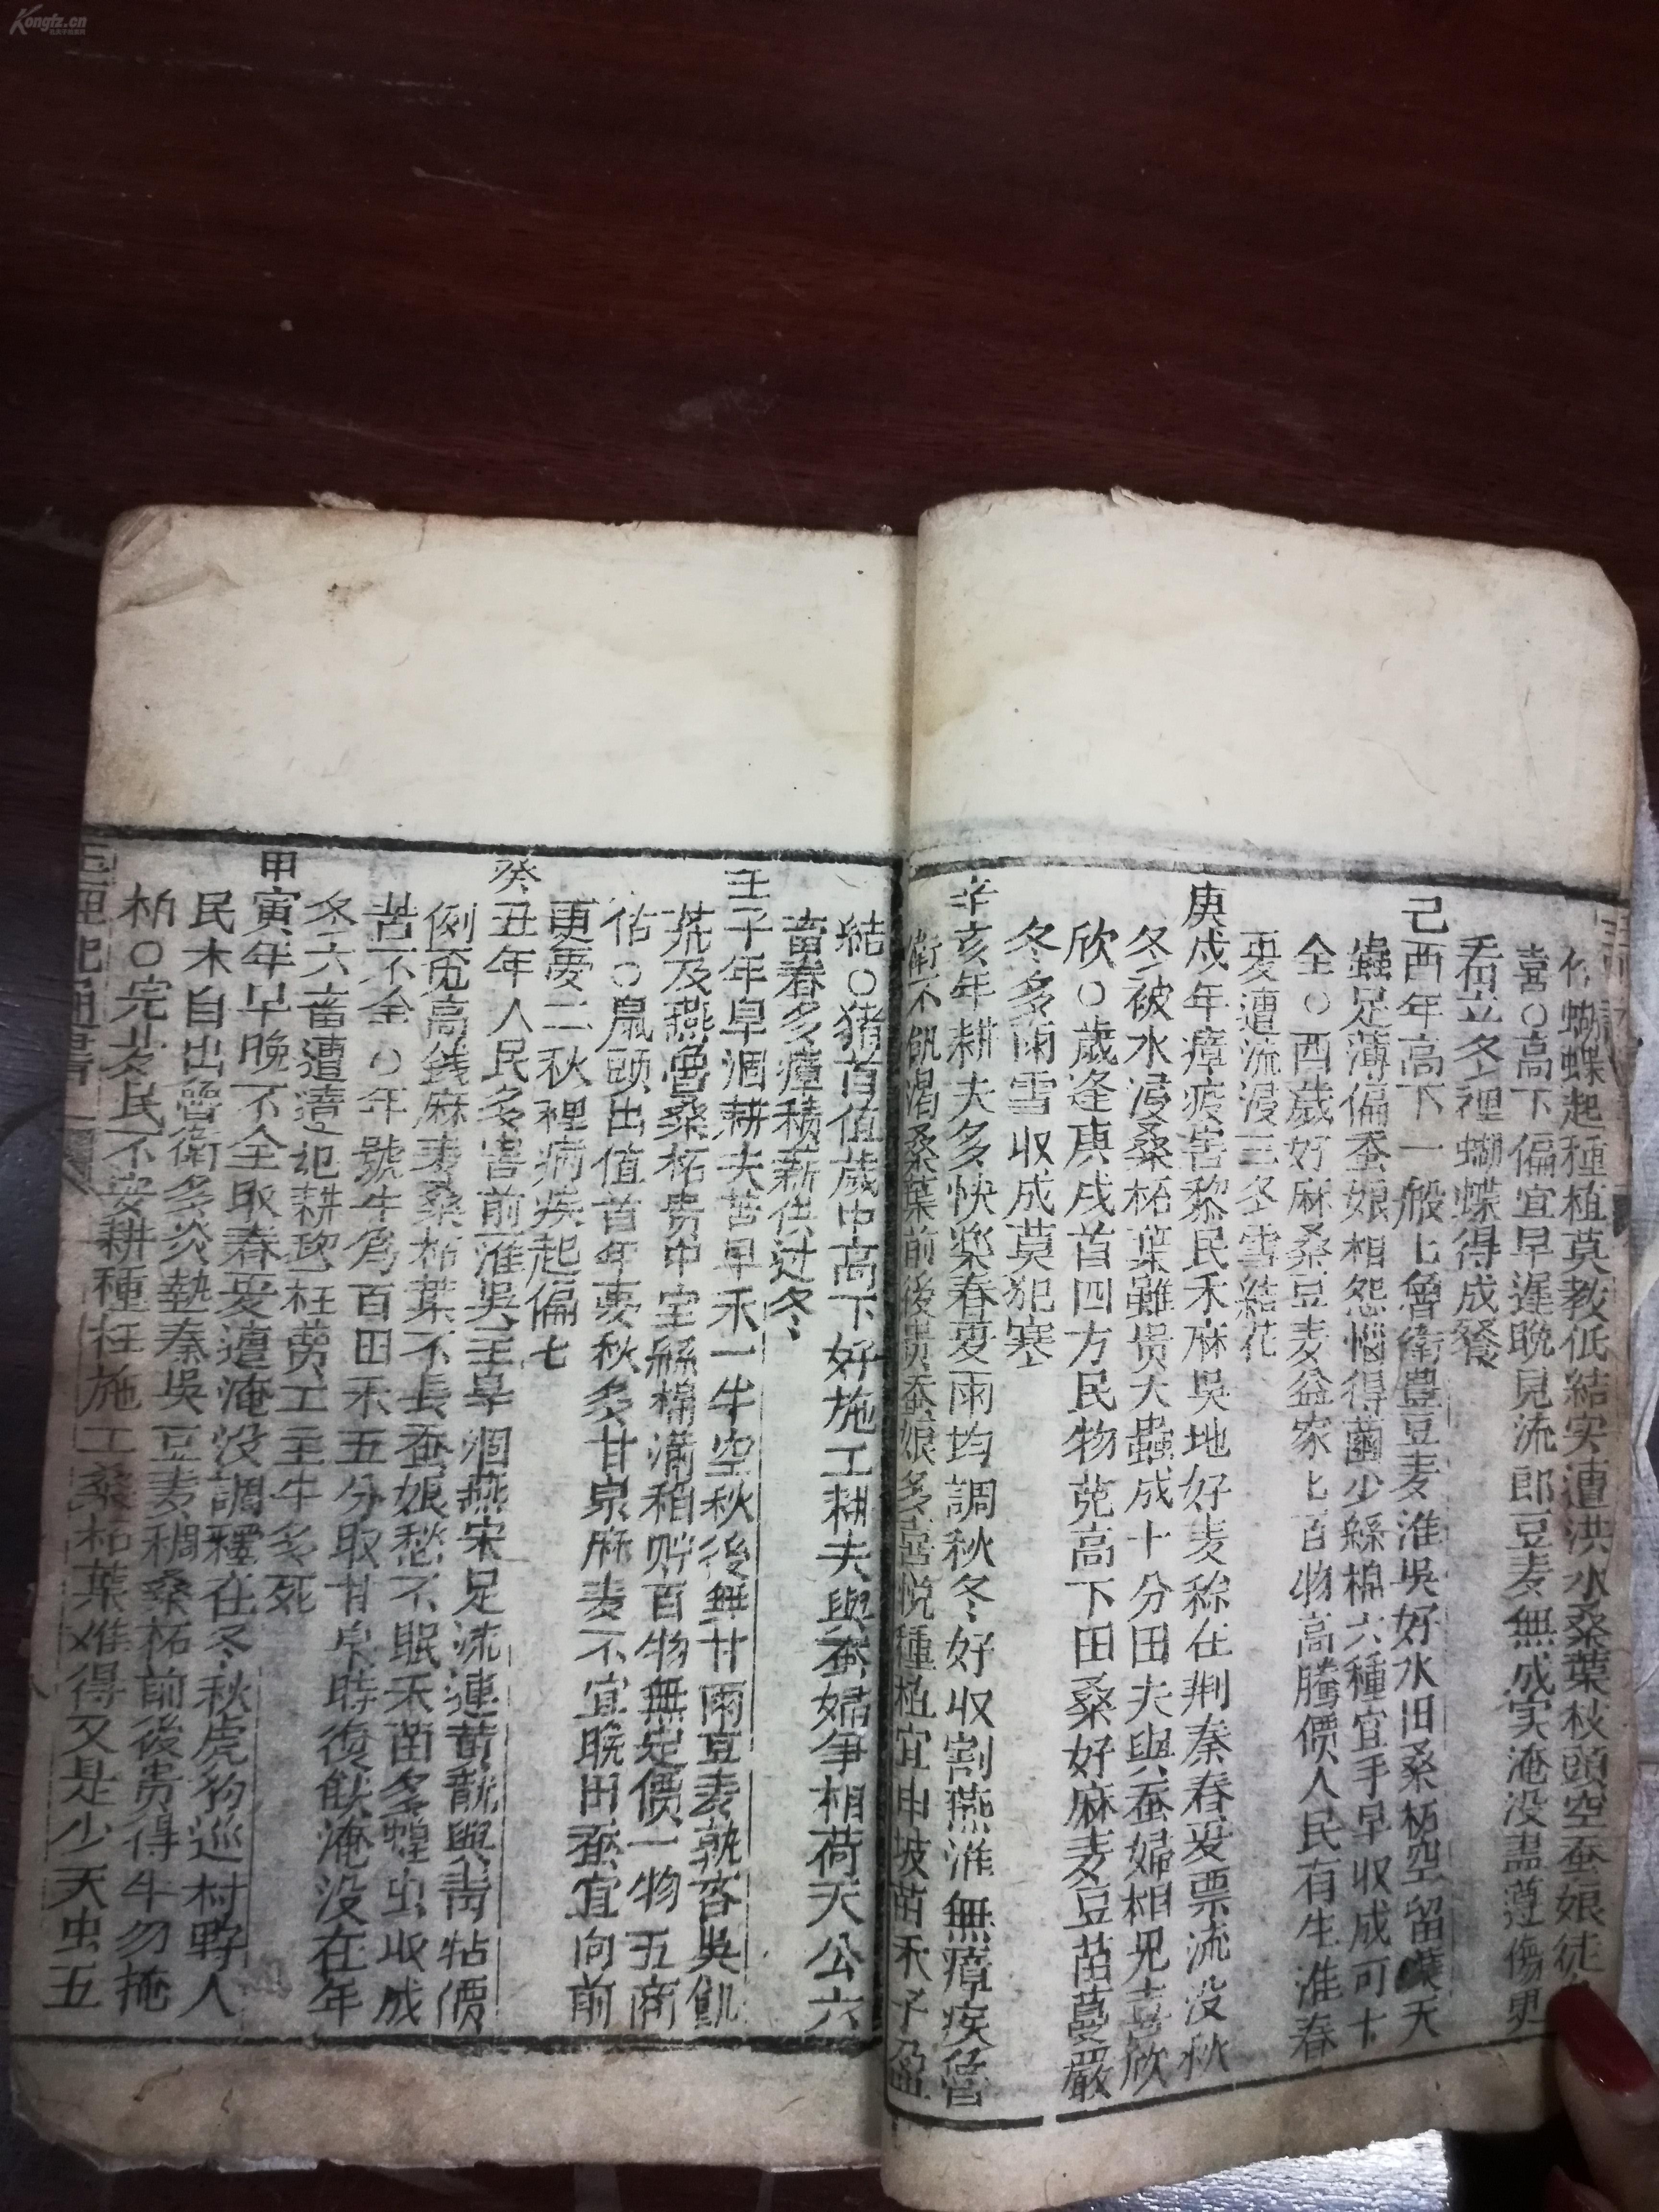 Kongfz.cn
作蝴蝶起種植莫教低結实遭洪水桑葉枝頭空蚕娘徒
喜○高下偏宜早遲晚見流郎豆麦無成实淹没盡遵傷更
看立冬裡蝴蝶得成餐
己酉年高下一般七魯衛豊豆麦淮吳好水旧桑柘空留葉天
蟲足薄偏蚕娘相怨惱得繭少絲棉六種宜手早収成可十
全○酉歲好麻桑豆麦益家七百物高騰價人民有生淮春
夏遭流浸三冬雪結花
庚戍年瘴疫害黎民禾麻吳地好麦稌在荆秦春夏票流没秋
冬被水浸桑柘葉雖贵天蟲成十分田夫與蚕婦相見喜欣
欣○歲逢庚戌首四方民物蓏高下田桑好麻麦豆苗蔓嚴
冬多雨雪収成莫犯寒
辛亥年耕夫多快楽春夏雨均調秋冬好収割燕淮無瘴疾魯
衛不飢渴桑葉前後贵蚕娘多喜悦種植宜申坡苗禾子盈
結○猪首值歲中高下好施工耕夫與蚕婦争相荷天公六
畜春多瘴積薪供过冬
壬子年旱涸耕夫苦早禾一半空秋後無甘雨豆麦熟吝吳飢
荒及燕魯桑柘贵中宝絲棉满箱贮百物無定價一物五商
估○鼠頭出值首年夏秋多甘泉麻麦不宜晚田蚕宜向前
更憂二秋裡病疾起偏七
癸丑年人民多害前淮吳主旱涸燕宋足流連黄龍與青牯價
例覓高銭麻麦桑柘葉不長蚕娘愁不眠禾苗多蝗虫収成
苦不全○年號牛爲百田禾五分取甘泉時復餤淹没在年
冬六畜遭遠把耕犂枉劳工主牛多死
甲寅年早晚不全取春夏遭淹没調釋在冬秋虎狗巡村野人
民木自出魯衛多炎埶秦吳豆麦稠桑柘前後贵得牛勿掩
柏○完芠民不安耕種枉施工桑柘葉难得又是少天虫五